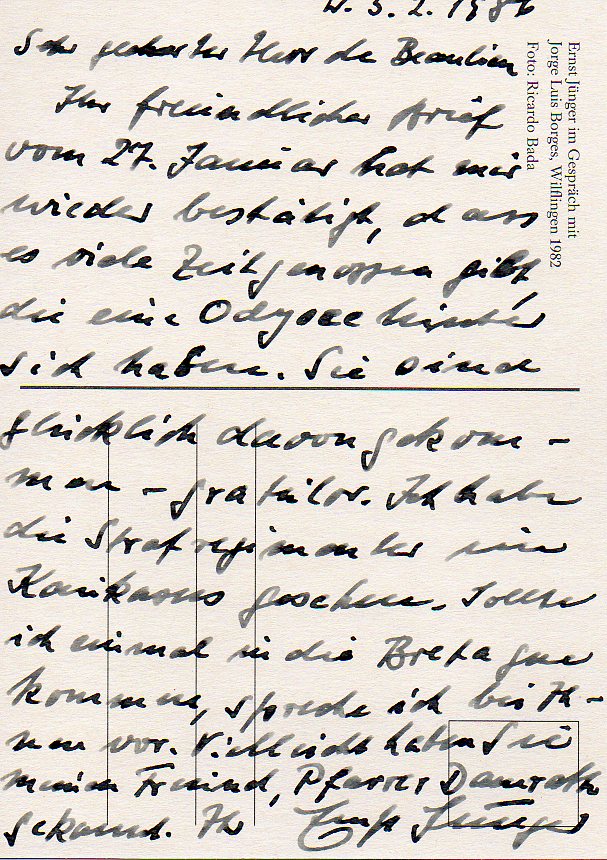 W. 3. 2. 1986
Sehr geehrter Herr de Beaulieu
Ihr freundlicher Brief
vom 27. Januar hat mir
wieder bestätigt, dass
es viele Zeitgenossen gibt,
die eine Odysee hinter
sich haben. Sie sind
glücklich davongekom-
men – gratulor. Ich habe
die Strafregimenter im
Kaukasus gesehen. Sollte
ich einmal in die Bretagne
kommen, spreche ich bei Ih-
nen vor. Vielleicht haben Sie
meinen Freund, Pfarrer Damrath
gekannt. Ihr Ernst Jünger
Ernst Jünger im Gespräch mit
Jorge Luis Borges, Wilflingen 1982
Foto: Ricardo Bada